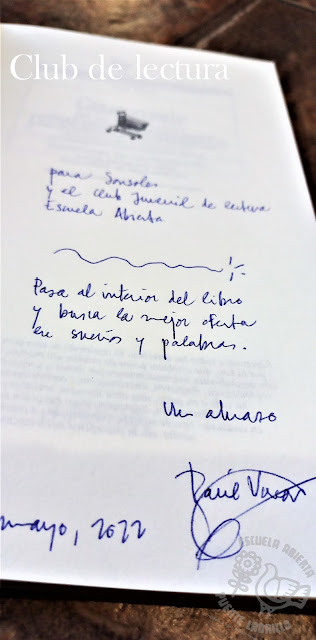 Club de lectura
para Sonsoles
y el club Juvenil de lectura
Escuela Abierta
Pasa al interior del libro
y busca la mejor oferta
en sueños y palabras.
Un abrazo
Raúl Vacas
mayo, 2022
ESCUELA ABIERTA